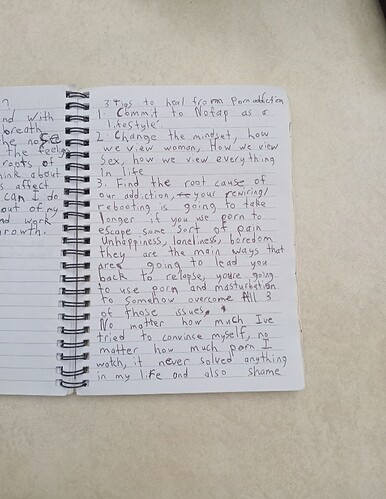 ?
nd with
breath
he nose
the feelign
roots of
hink about
s affect
can I do
out of my
nd work
rowth.
3 Tips to heal from Porn addiction
1. Commit to Nofap as a
lifestyle
2. Change the mindset, how
we view woman, How we view
sex, how we view everything
in life
3. Find the root cause of
our addiction, your rewiring/
rebooting is going to take
longer if you use porn to
escape some sort of pain
Unhappiness, loneliness, boredom
they are the main ways that
are going to lead you
back to relapse, youre going
to use porn and masturbation
to somehow overcome All 3
of those issues.
No matter how much Ive
tried to convince myself, no
matter how much porn I
watch, it never solved anything
in my life and also shame